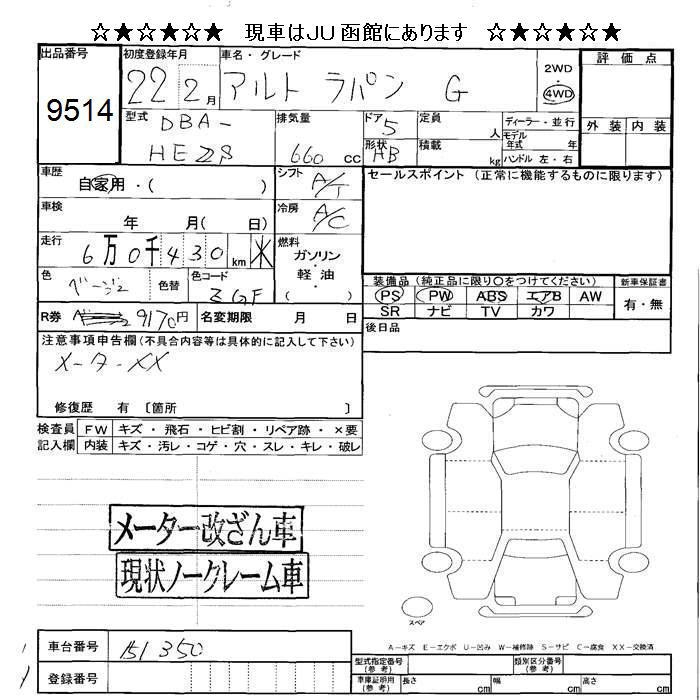 ☆★☆★☆★ 現車はJU函館にあります ☆★☆★☆★
出品番号 9514
初度登録年月 22 2月
車名・グレード アルト ラパン G
2WD ・ 4WD
評価点
外装 内装
型式 DBA-HE22S
排気量 660 cc
ドア 5
形状 HB
定員 人
積載 kg
ディーラー・並行
モデル年式 年
ハンドル 左・右
車歴 自家用・( )
シフト A/T
セールスポイント (正常に機能するものに限ります)
車検 年 月( 日)
冷房 A/C
走行 6万0千430km
燃料 ガソリン・軽油 ( )
色 ベージュ 色替
色コード ZGF
装備品 (純正品に限り○をつけてください)
PS PW ABS エアB AW
SR ナビ TV カワ
新車保証書 有・無
R券 9170円
名変期限 月 日
後日品
注意事項申告欄(不具合内容等は具体的に記入して下さい)
メーター XX
修復歴 有 〔箇所 〕
検査員記入欄
FW キズ・飛石・ヒビ割・リペア跡・×要
内装 キズ・汚レ・コゲ・穴・スレ・キレ・破レ
メーター改ざん車
現状ノークレーム車
スペア
A-キズ E-エクボ U-凹み W-補修跡 S-サビ C-腐食 XX-交換済
車台番号 151350
登録番号
型式指定番号(参考)
類別区分番号(参考)
車庫証明用(参考) 長さ cm 幅 cm 高さ cm